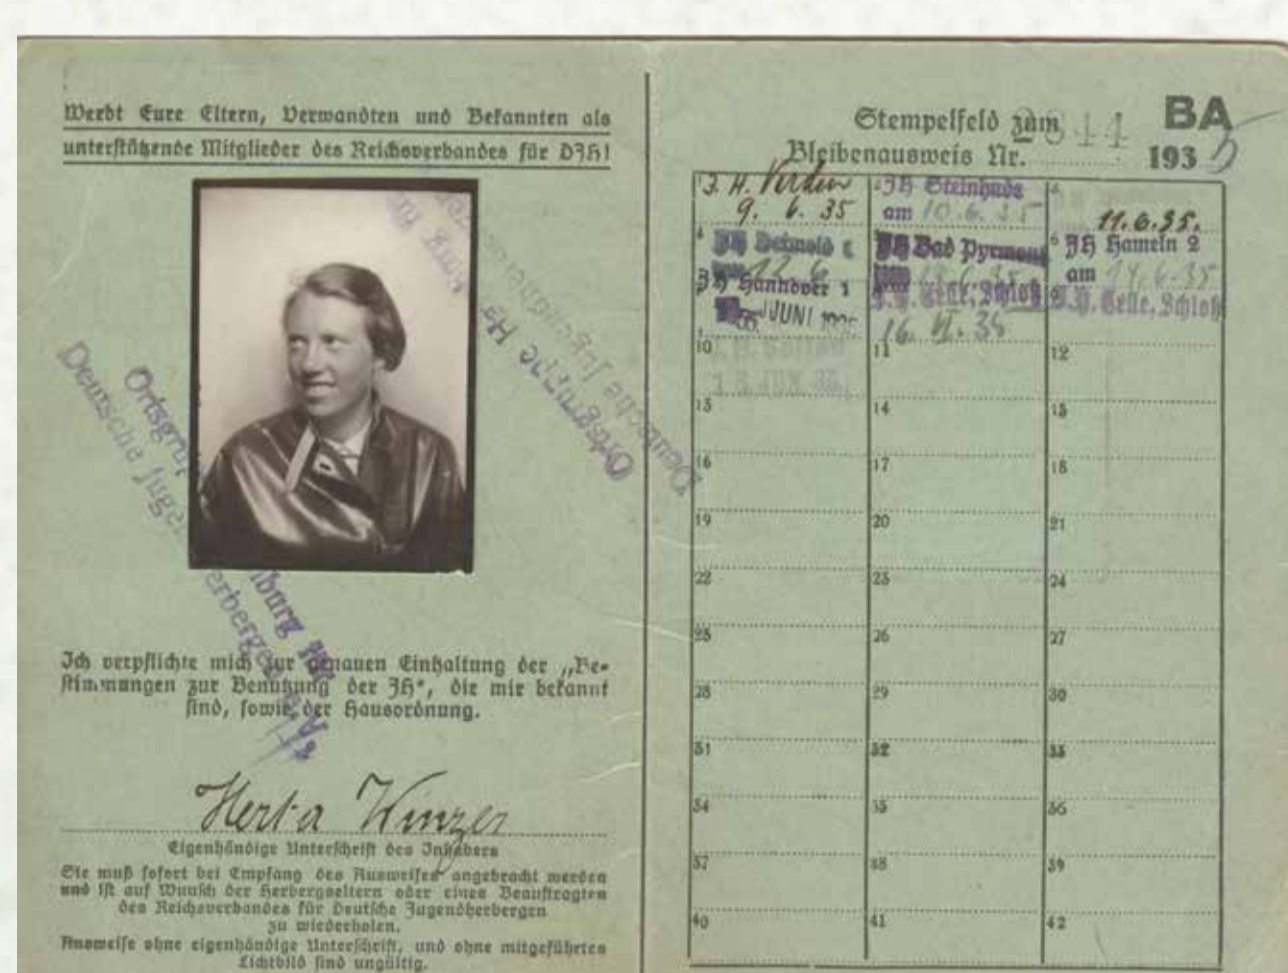 Werbt Eure Eltern, Verwandten und Bekannten als
unterstützende Mitglieder des Reichsverbandes für DJH!
Ortsgru
Deutsche Juge
Ortsgruppe Ha
Deutsche Jugendh
burg
erberge
Ich verpflichte mich zur genauen Einhaltung der „Be-
stimmungen zur Benutzung der JH“, die mir bekannt
sind, sowie der Hausordnung.
Herta Kinzer
Eigenhändige Unterschrift des Inhabers
Sie muß sofort bei Empfang des Ausweises angebracht werden
und ist auf Wunsch der Herbergseltern oder eines Beauftragten
des Reichsverbandes für Deutsche Jugendherbergen
zu wiederholen.
Ausweise ohne eigenhändige Unterschrift, und ohne mitgeführtes
Lichtbild sind ungültig.
Stempelfeld zum BA
Bleibenausweis Nr. 2344 1935
1 J. H. Verden 2 JH Steinhude 3
9. 6. 35 am 10. 6. 35 11. 6. 35.
4 JH Detmold JH Bad Pyrmont 6 JH Hameln 2
12. 6 am 14. 6. 35
JH Hannover 1 J. H. Celle, Schloß J. H. Celle, Schloß
JUNI 16. VI. 35
10 11 12
13 14 15
16 17 18
19 20 21
22 23 24
25 26 27
28 29 30
31 32 33
34 35 36
37 38 39
40 41 42